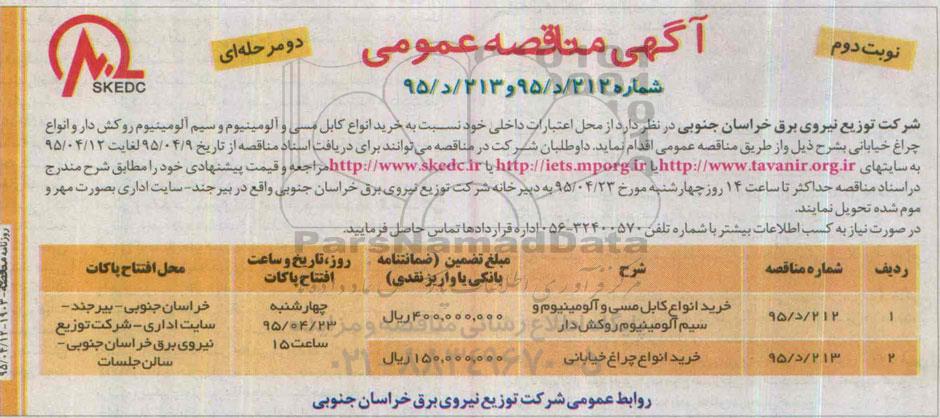 نوبت دوم
آگهی مناقصه عمومی
دو مرحله‌ای
SKEDC
شماره ۲۱۲/د/۹۵ و ۲۱۳/د/۹۵
شرکت توزیع نیروی برق خراسان جنوبی در نظر دارد از محل اعتبارات داخلی خود نسبت به خرید انواع کابل مسی و آلومینیوم و سیم آلومینیوم روکش دار و انواع
چراغ خیابانی بشرح ذیل و از طریق مناقصه عمومی اقدام نماید. داوطلبان شرکت در مناقصه می‌توانند برای دریافت اسناد مناقصه از تاریخ ۹۵/۰۴/۹ لغایت ۹۵/۰۴/۱۲
به سایتهای http://www.tavanir.org.ir یا http://iets.mporg.ir یا http://www.skedc.ir مراجعه و قیمت پیشنهادی خود را مطابق شرح مندرج
در اسناد مناقصه حداکثر تا ساعت ۱۴ روز چهارشنبه مورخ ۹۵/۰۴/۲۳ به دبیرخانه شرکت توزیع نیروی برق خراسان جنوبی واقع در بیرجند- سایت اداری بصورت مهر و
موم شده تحویل نمایند.
در صورت نیاز به کسب اطلاعات بیشتر با شماره تلفن ۳۲۴۰۰۵۷۰-۰۵۶ اداره قراردادها تماس حاصل فرمایید.
ParsNamadData
ردیف شماره مناقصه شرح مبلغ تضمین (ضمانتنامه بانکی یا واریز نقدی) روز، تاریخ و ساعت افتتاح پاکات محل افتتاح پاکات
۱ ۲۱۲/د/۹۵ خرید انواع کابل مسی و آلومینیوم و سیم آلومینیوم روکش دار ۴۰۰,۰۰۰,۰۰۰ ریال چهارشنبه ۹۵/۰۴/۲۳ ساعت ۱۵ خراسان جنوبی- بیرجند- سایت اداری- شرکت توزیع نیروی برق خراسان جنوبی- سالن جلسات
۲ ۲۱۳/د/۹۵ خرید انواع چراغ خیابانی ۱۵۰,۰۰۰,۰۰۰ ریال
روابط عمومی شرکت توزیع نیروی برق خراسان جنوبی
روزنامه مناقصه- ۱۹۰۳- ۹۵/۰۴/۱۲